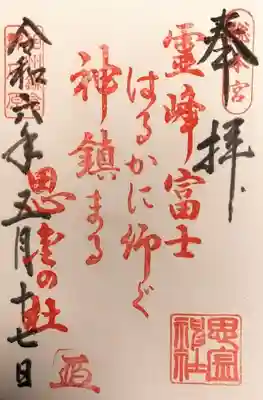 総本宮
奉拝
靈峰富士
はるかに仰ぐ
神鎮まる
思金の杜
思金神社
令和六年五月十七日